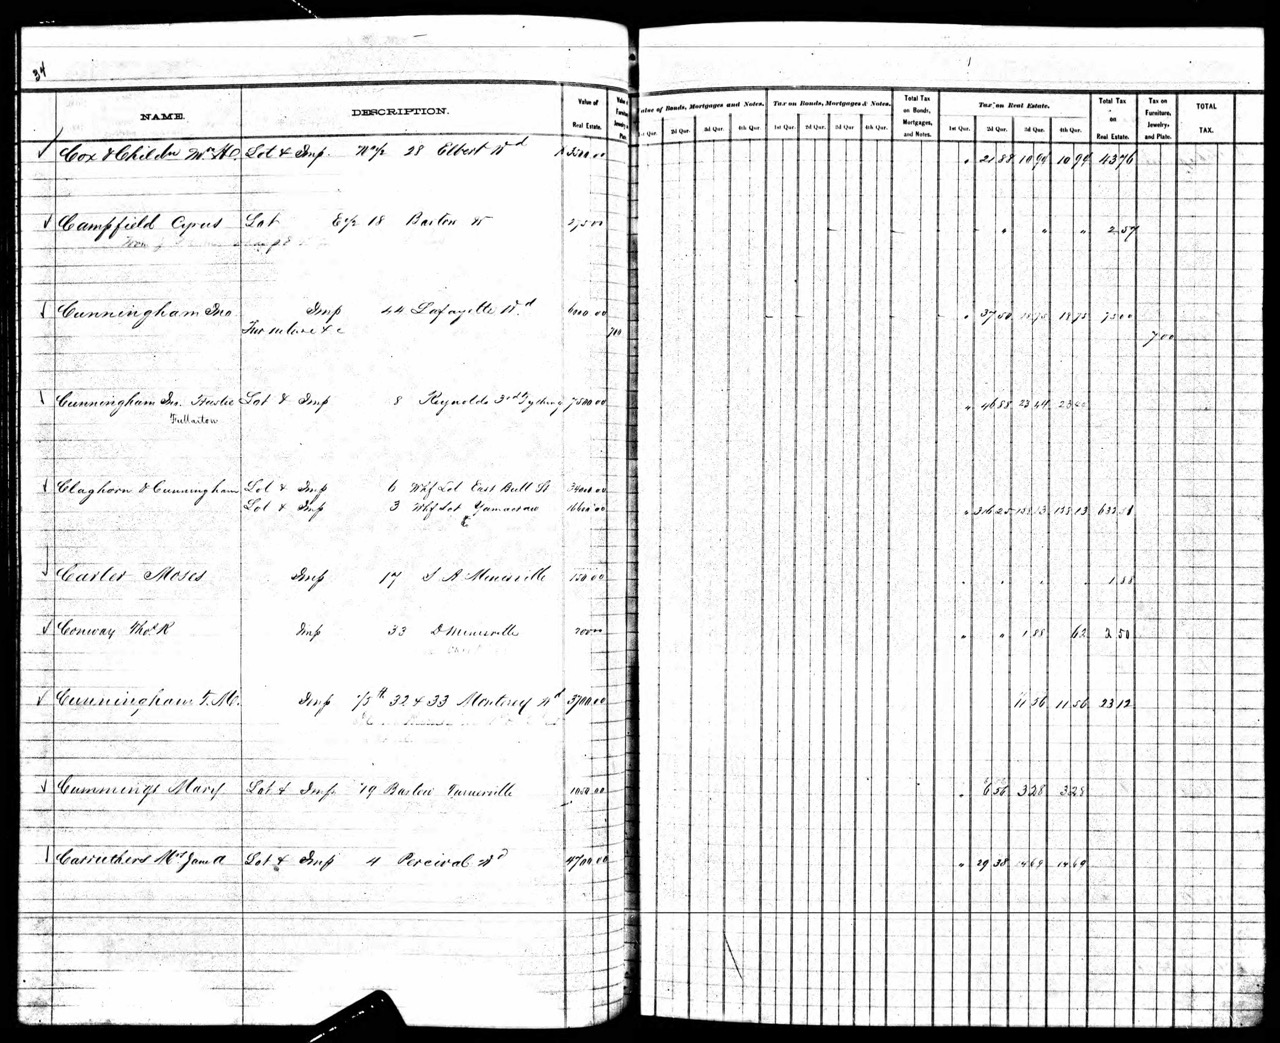 34
NAME. DESCRIPTION. Value of Real Estate. Value of Furniture Jewelry & Plate
Value of Bonds, Mortgages and Notes. Tax on Bonds, Mortgages & Notes. Total Tax on Bonds, Mortgages, and Notes. Tax on Real Estate. Total Tax on Real Estate. Tax on Furniture, Jewelry, and Plate. TOTAL TAX.
1st Qur. 2d Qur. 3d Qur. 4th Qur. 1st Qur. 2d Qur. 3d Qur. 4th Qur. 1st Qur. 2d Qur. 3d Qur. 4th Qur.
Cox & Childn Lot & Imp. W 1/2 28 Elbert Wd 3500.00 " 21 88 10 94 10 94 43 76
Campfield Cyrus Lot E 1/2 18 Barton W 275 00 " " " 2 57
Cunningham Jno. Imp 44 Lafayette Wd 6000 00 " 37 50 18 75 18 75 75 00
Furniture &c 700 7 00
Cunningham Jno. Trustee Lot & Imp 8 Reynolds 3rd Tything 7500.00 " 46 88 23 44 23 44
Fullarton
Claghorn & Cunningham Lot & Imp 6 Whf Lot East Bull St 34000.00
Lot & Imp 3 Whf Lot Yamacraw 16600.00 " 316 25 158 13 158 13 632 51
Carter Moses Imp 17 S A Minisville 150 00 1 88
Conway Thos. K Imp 33 D Minisville 200 00 " " 1 88 62 2 50
Cunningham T. M. Imp 1/3th 32 & 33 Monterey Wd 3700.00 11 56 11 56 23 12
Cummings Mary Lot & Imp 19 Barlow 1050.00 " 6 56 3 28 3 28
Carruthers Mrs Jane A Lot & Imp 4 Percival Wd 4700 00 " 29 38 14 69 14 69